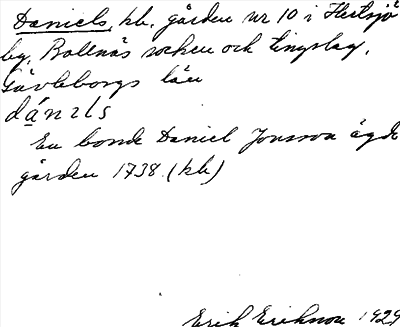 Daniels, kb, gården nr 10 i Hertsjö
by, Bollnäs socken och tingslag,
Gävleborgs län
dánils
En bonde Daniel Jonsson ägde
gården 1738 (kb)
Erik Eriksson 1929